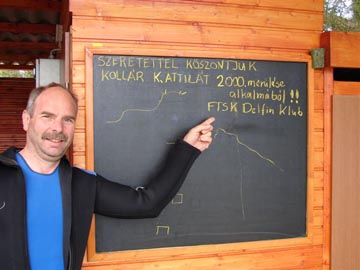 SZERETETTEL KÖSZÖNTJÜK
KOLLÁR K. ATTILÁT 2000. merülése
alkalmából !!
FTSK Delfin Klub